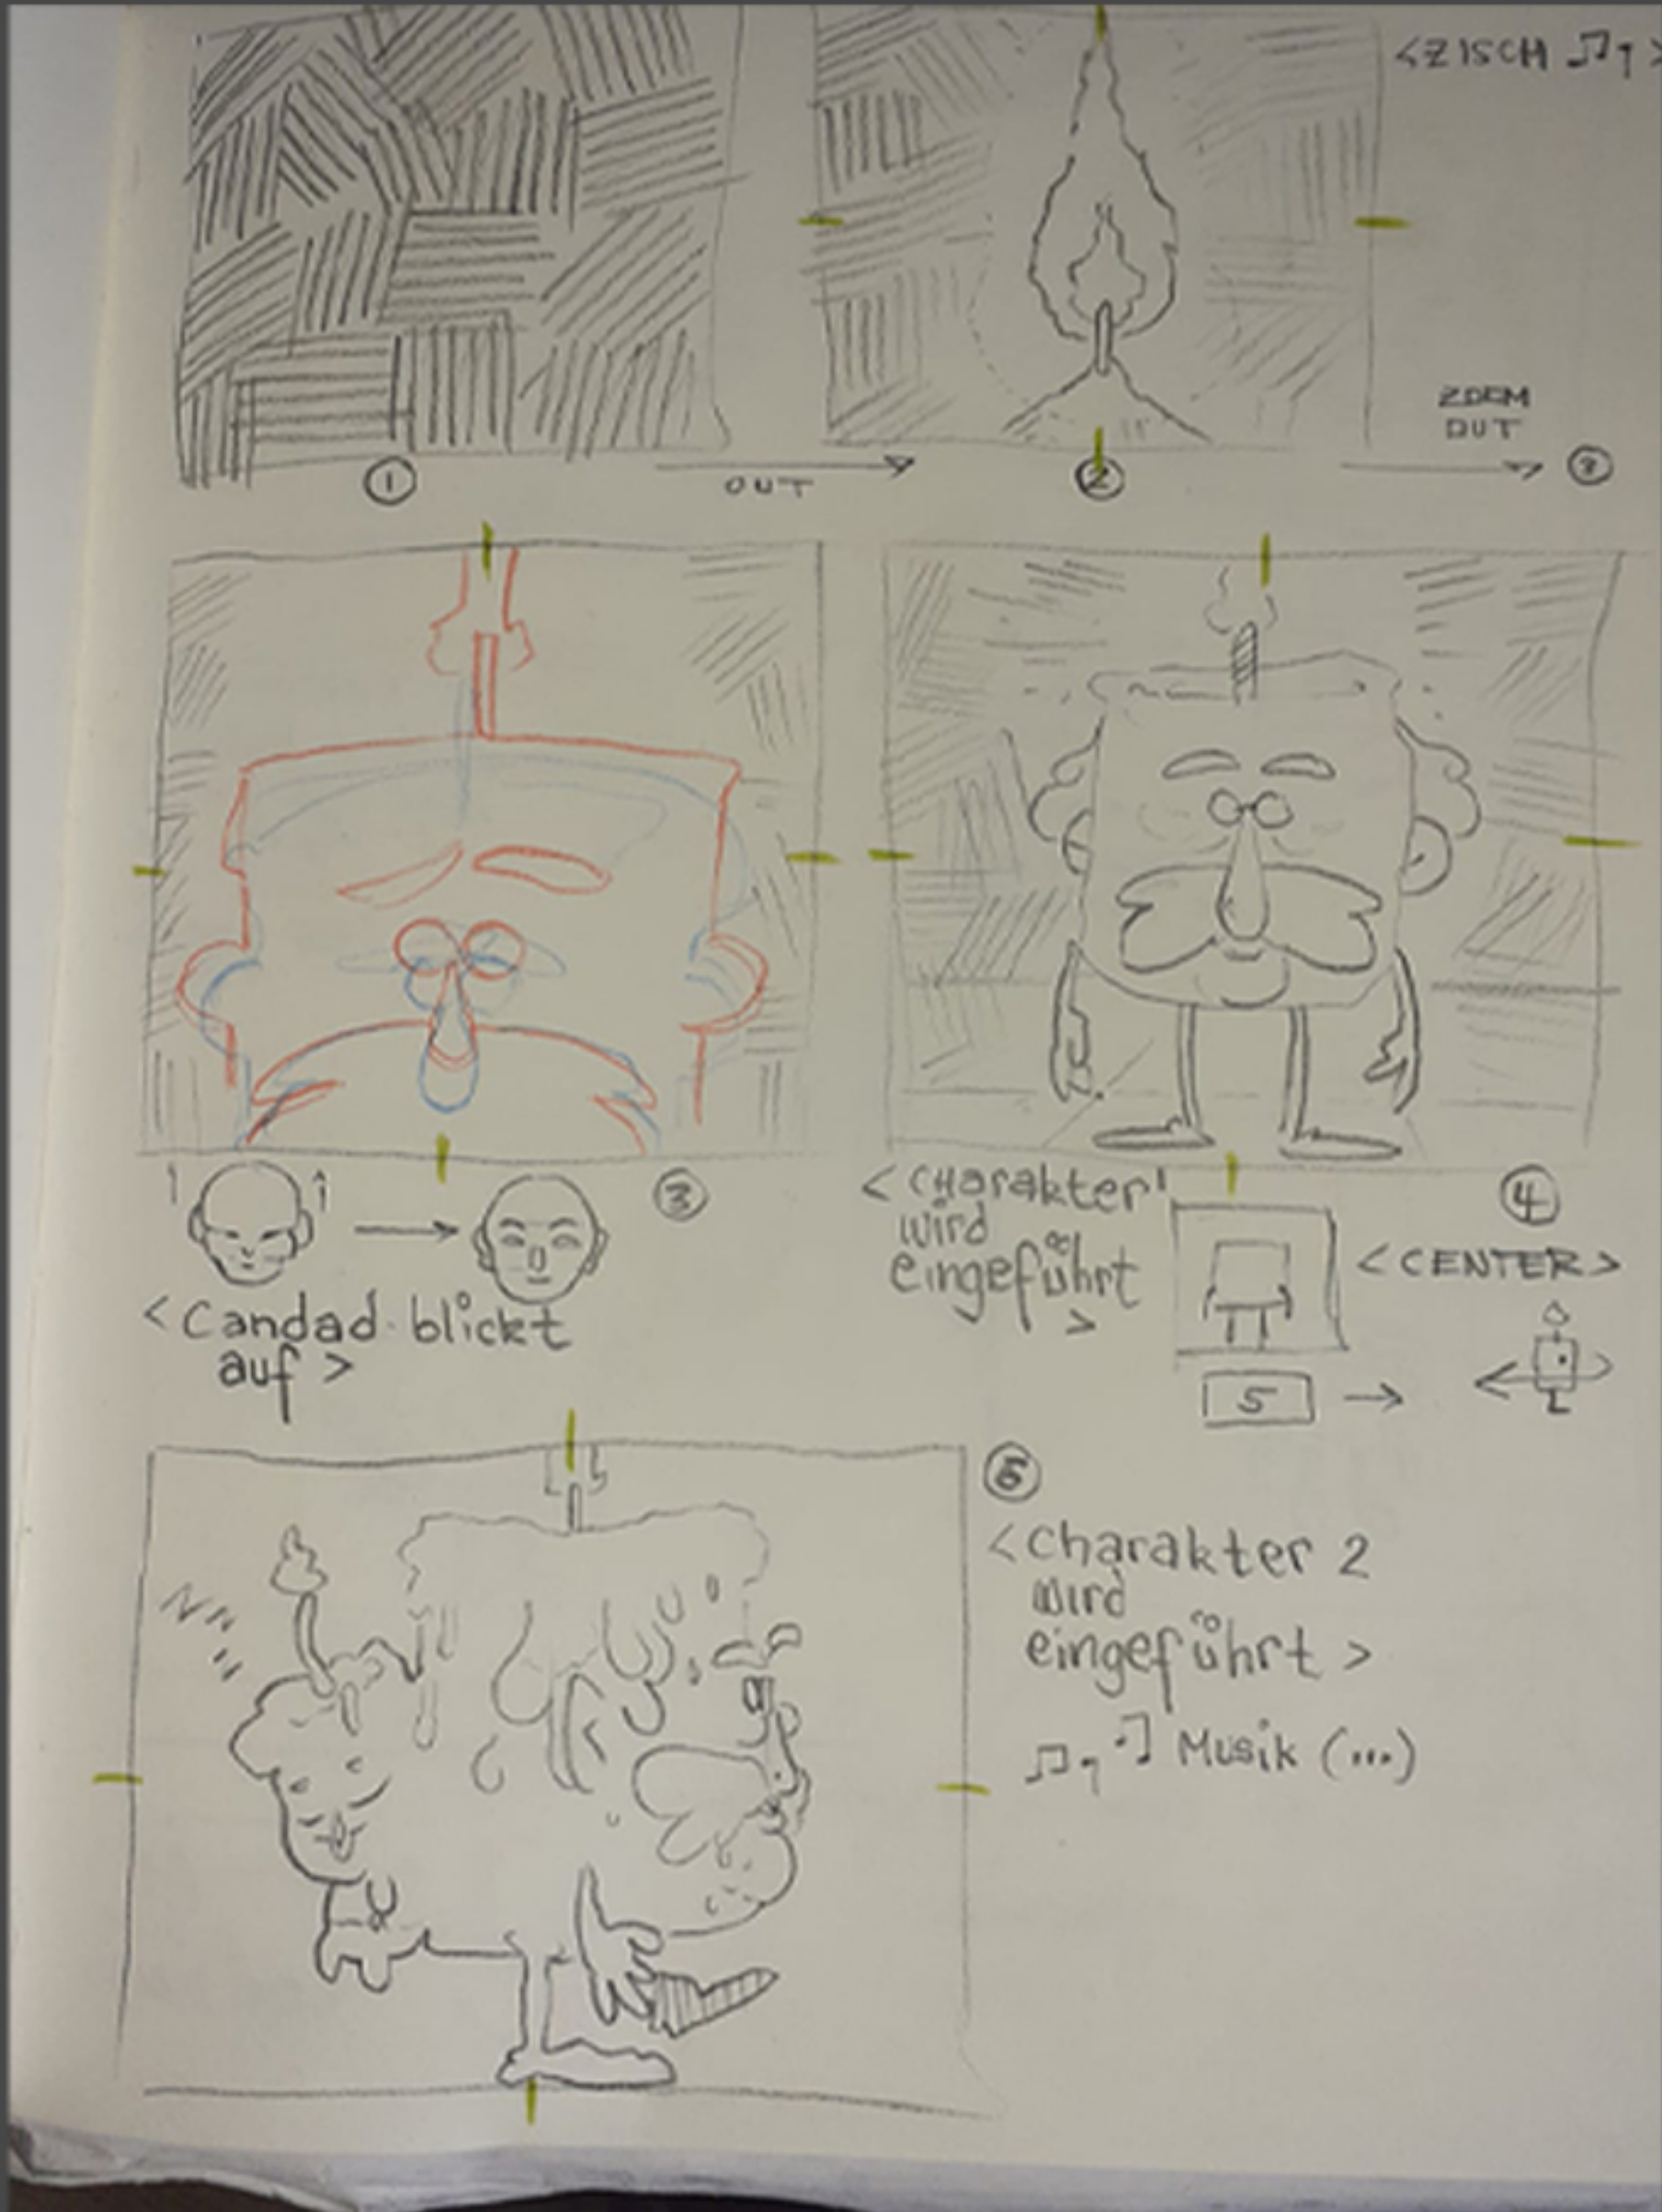 <ZISCH ♫ >
ZOOM
OUT
1
OUT
2
3
3
<Candad blickt
auf>
<Charakter 1
wird
eingeführt
>
4
<CENTER>
5
5
<Charakter 2
wird
eingeführt>
Musik (...)